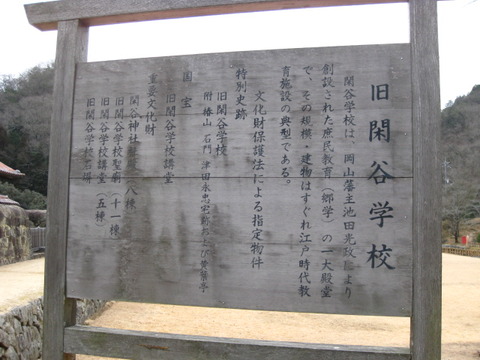 旧閑谷学校
閑谷学校は、岡山藩主池田光政により
創設された庶民教育（郷学）の一大殿堂
で、その規模・建物はすぐれ江戸時代教
育施設の典型である。
文化財保護法による指定物件
特別史跡
旧閑谷学校
附 椿山 石門 津田永忠宅跡および黄葉亭
国宝
旧閑谷学校講堂
重要文化財
閑谷神社 八棟
旧閑谷学校聖廟（十一棟）
旧閑谷学校講堂（五棟）
旧閑谷学校石塀